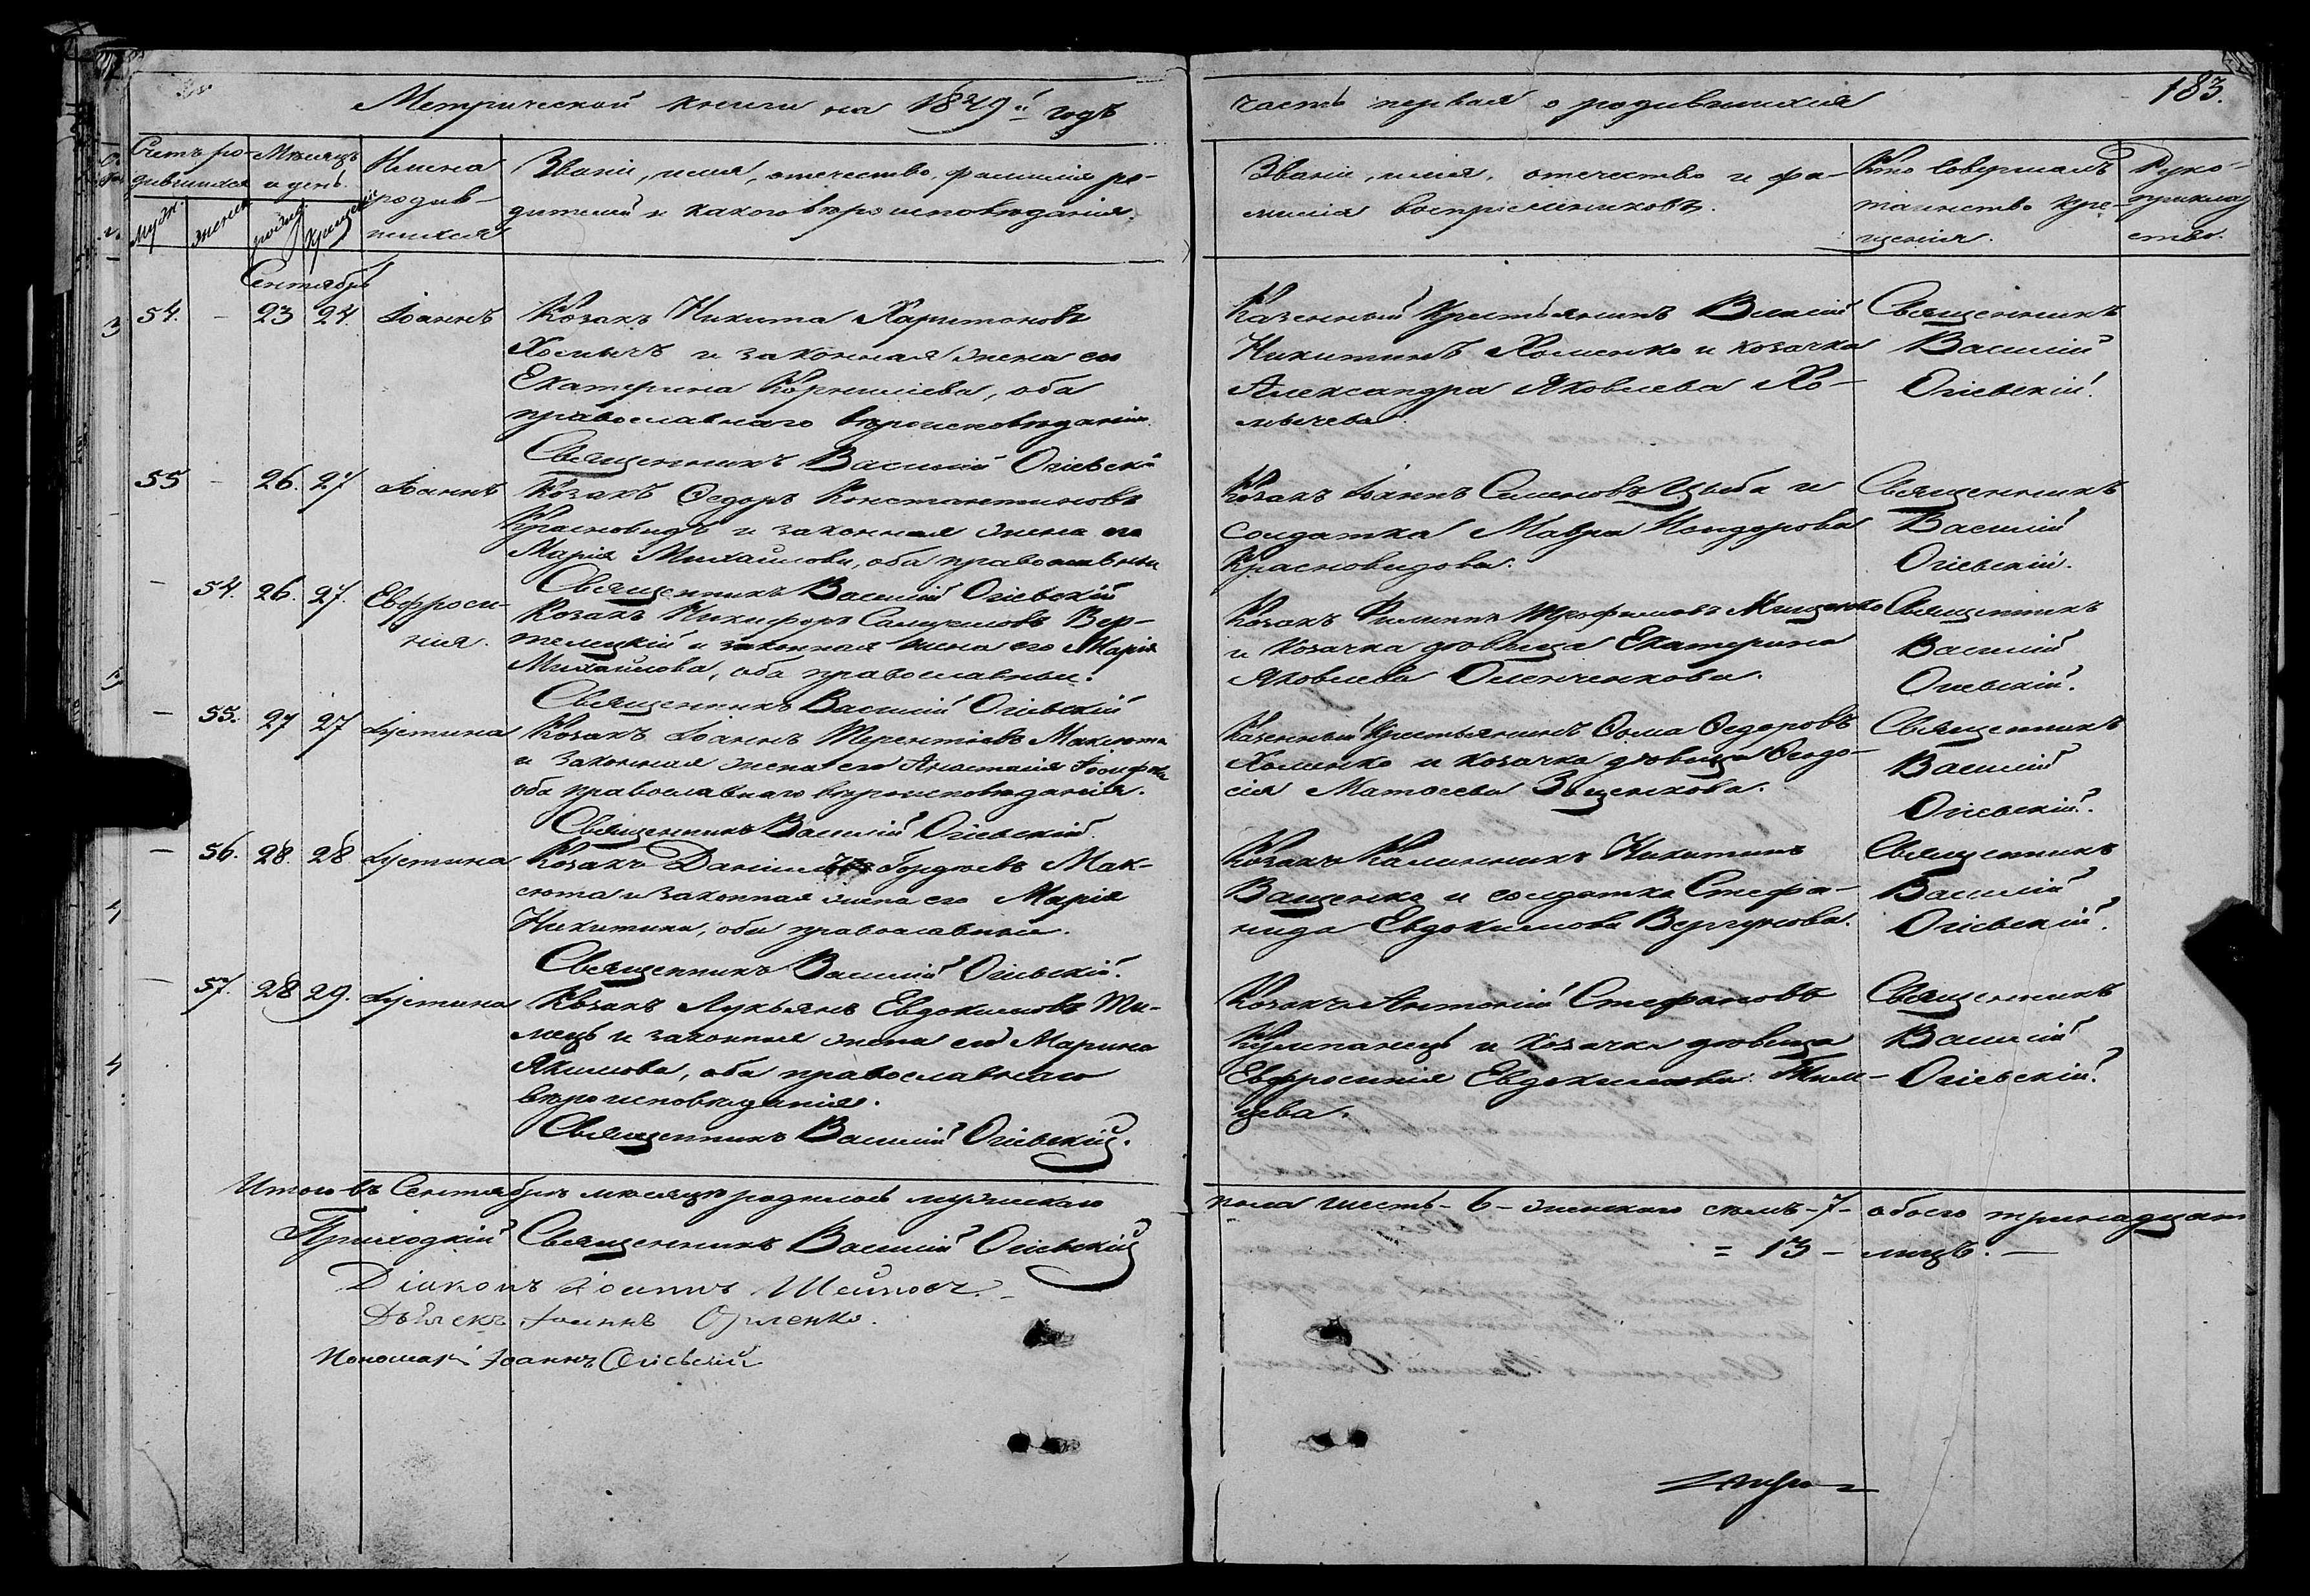 Метрической книги на 1849й годъ
часть первая о родившихся
183.
Счетъ ро-
дившихся
Мѣсяцъ
и день.
Имена
родив-
шихся
Званіе, имя, отечество, фамилія ро-
дителей и какого вѣроисповѣданія.
Званіе, имя, отечество и фа-
милія воспріемниковъ.
Кто совершалъ
таинство кре-
щенія.
Руко-
приклад
ство.
муж.
женск
рожд.
крещенія
Сентябрь
54. - 23 24. Іоаннъ
Козакъ Никита Харитоновъ
Хомычъ и законная жена его
Екатерина Корнилиева, оба
православнаго вѣроисповѣданія.
Священникъ Василій Огіевскій
Казенный Крестьянинъ Василій
Никитинъ Хоменко и козачка
Александра Яковлева Хо-
мычева.
Священникъ
Василій
Огіевскій.
55 - 26. 27 Іоаннъ
Козакъ Ѳедоръ Константиновъ
Красновидъ и законная жена его
Марія Михайлова, оба православны
Священникъ Василій Огіевскій
Козакъ Іоаннъ Семеновъ Цыба и
солдатка Мавра Исидорова
Красновидова.
Священникъ
Василій
Огіевскій.
- 54. 26. 27. Евфроси-
нія.
Козакъ Никифоръ Самуиловъ Вер-
телецкій и законная жена его Марія
Михайлова, оба православны.
Священникъ Василій Огіевскій
Козакъ Филиппъ Трофимовъ Мищенко
и козачка дѣвица Екатерина
Яковлева Оленченкова.
Священникъ
Василій
Огіевскій.
- 55. 27 27 Іустина
Козакъ Іоаннъ Терентіевъ Максюта
и законная жена его Анастасія Іосифова
оба православнаго вѣроисповѣданія.
Священникъ Василій Огіевскій.
Казенный Крестьянинъ Ѳома Ѳедоровъ
Хоменко и козачка дѣвица Ѳеодо-
сія Матѳеева
Священникъ
Василій
Огіевскій.
- 56. 28. 28 Іустина
Козакъ Даніилъ Гордѣевъ Мак-
сюта и законная жена его Марія
Никитина, оба православны.
Священникъ Василій Огіевскій.
Козакъ Калинникъ Никитинъ
Ващенко и солдатка Стефа-
нида Евдокимова Вергунова.
Священникъ
Василій
Огіевскій.
- 57. 28 29. Іустина
Козакъ Лукьянъ Евдокимовъ Ти-
мецъ и законная жена его Марина
Якимова, оба православнаго
вѣроисповѣданія.
Священникъ Василій Огіевскій.
Козакъ Антоній Стефановъ
Кумпанецъ и козачка дѣвица
Евфросинія Евдокимова Тим-
цева.
Священникъ
Василій
Огіевскій.
Итого въ Сентябрѣ мѣсяцѣ родилось мужескаго
пола шесть - 6 - женскаго семь - 7 - обоего тринадцать
= 13 - лицъ. -
Приходскій Священникъ Василій Огіевскій
Діаконъ Іоаннъ
Дьячекъ Іоаннъ
Пономарь Іоаннъ Огіевскій